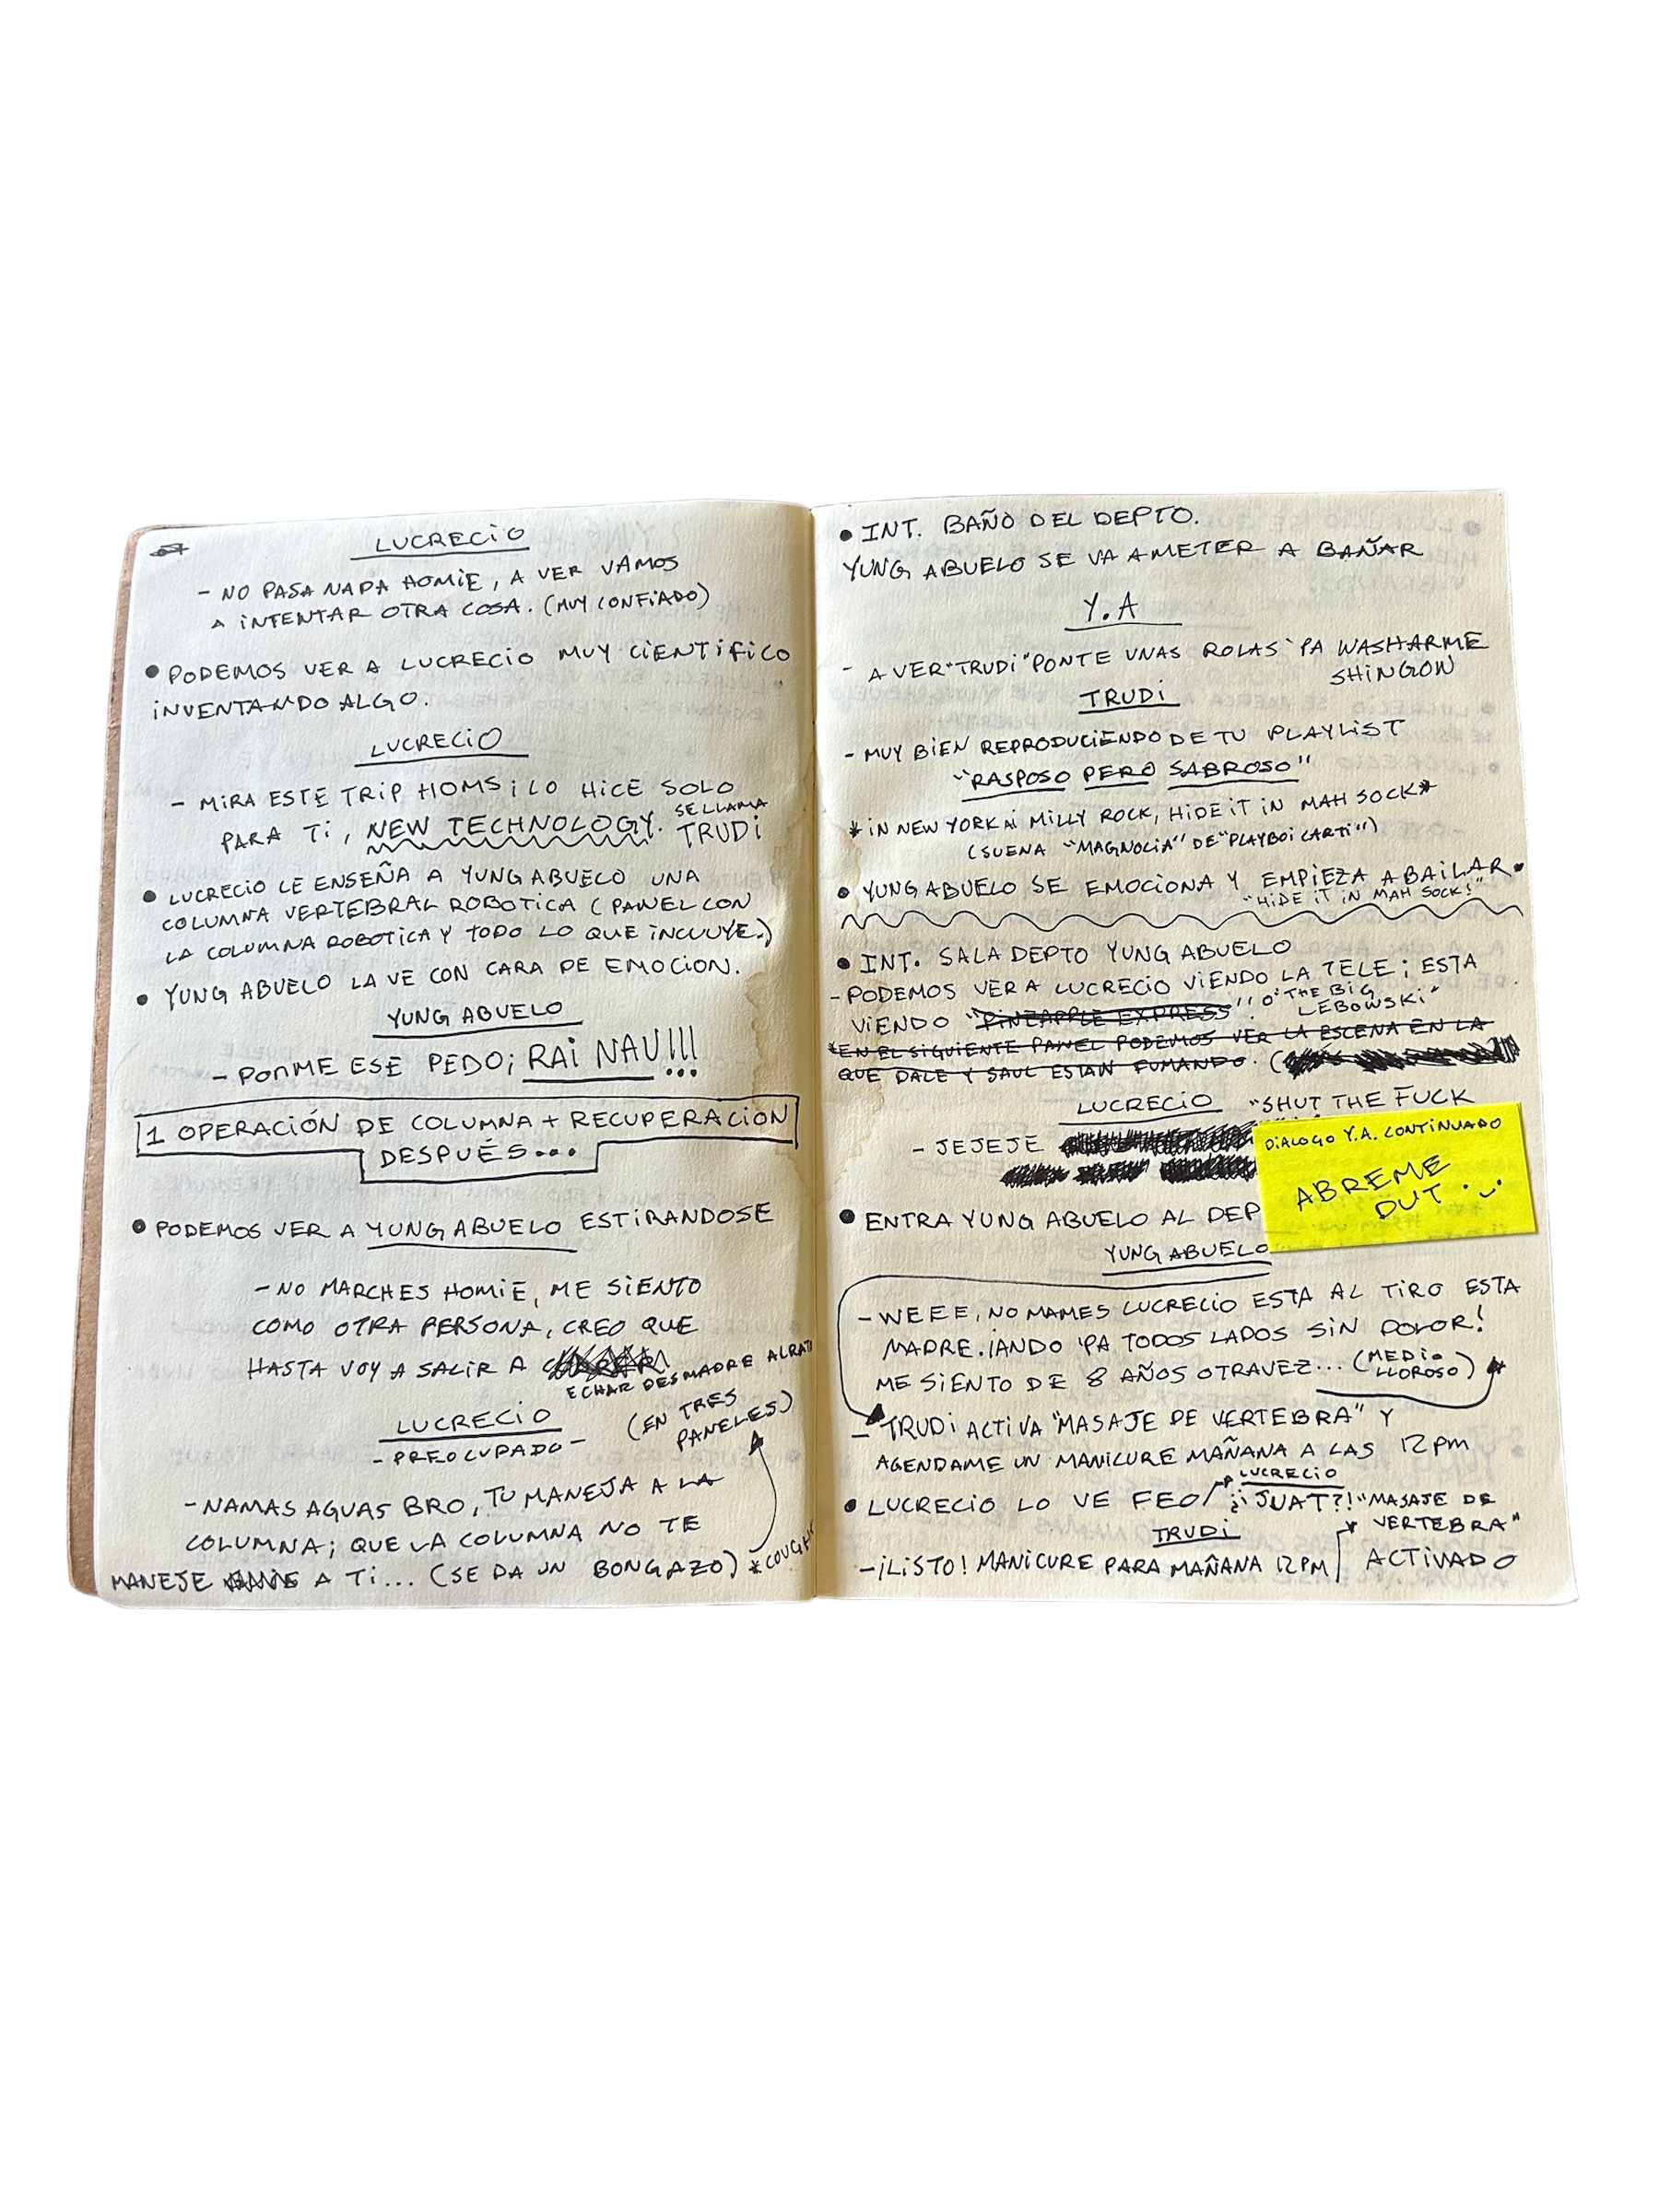 LUCRECIO
- NO PASA NADA HOMIE, A VER VAMOS
A INTENTAR OTRA COSA. (MUY CONFIADO)
• PODEMOS VER A LUCRECIO MUY CIENTIFICO
INVENTANDO ALGO.
LUCRECIO
- MIRA ESTE TRIP HOMS; LO HICE SOLO
PARA TI, NEW TECHNOLOGY. SE LLAMA
TRUDI
• LUCRECIO LE ENSEÑA A YUNG ABUELO UNA
COLUMNA VERTEBRAL ROBOTICA (PANEL CON
LA COLUMNA ROBOTICA Y TODO LO QUE INCLUYE.)
• YUNG ABUELO LA VE CON CARA DE EMOCION.
YUNG ABUELO
- PONME ESE PEDO; RAI NAU!!!
1 OPERACIÓN DE COLUMNA + RECUPERACION
DESPUÉS...
• PODEMOS VER A YUNG ABUELO ESTIRANDOSE
- NO MARCHES HOMIE, ME SIENTO
COMO OTRA PERSONA, CREO QUE
HASTA VOY A SALIR A
ECHAR DESMADRE AL RATO
LUCRECIO
(EN TRES
PANELES)
- PREOCUPADO -
- NAMAS AGUAS BRO, TU MANEJA A LA
COLUMNA; QUE LA COLUMNA NO TE
MANEJE A TI... (SE DA UN BONGAZO) *COUGH*
• INT. BAÑO DEL DEPTO.
YUNG ABUELO SE VA A METER A BAÑAR
Y.A
- A VER "TRUDI" PONTE UNAS ROLAS 'PA WASHARME
SHINGON
TRUDI
- MUY BIEN REPRODUCIENDO DE TU PLAYLIST
"RASPOSO PERO SABROSO"
*IN NEW YORK AI MILLY ROCK, HIDE IT IN MAH SOCK*
(SUENA "MAGNOLIA" DE "PLAYBOI CARTI")
• YUNG ABUELO SE EMOCIONA Y EMPIEZA A BAILAR.
"HIDE IT IN MAH SOCK!"
• INT. SALA DEPTO YUNG ABUELO
- PODEMOS VER A LUCRECIO VIENDO LA TELE; ESTA
VIENDO "PINEAPPLE EXPRESS"!! O "THE BIG
LEBOWSKI"
*EN EL SIGUIENTE PANEL PODEMOS VER LA ESCENA EN LA
QUE DALE Y SAUL ESTAN FUMANDO. (
LUCRECIO "SHUT THE FUCK
- JEJEJE
DIALOGO Y.A. CONTINUADO
ABREME
DUT
• ENTRA YUNG ABUELO AL DEP
YUNG ABUELO
- WEEE, NO MAMES LUCRECIO ESTA AL TIRO ESTA
MADRE. ¡ANDO 'PA TODOS LADOS SIN DOLOR!
ME SIENTO DE 8 AÑOS OTRAVEZ... (MEDIO
LLOROSO) *
- TRUDI ACTIVA "MASAJE DE VERTEBRA" Y
AGENDAME UN MANICURE MAÑANA A LAS 12 PM
LUCRECIO
• LUCRECIO LO VE FEO / ¿¡JUAT?! "MASAJE DE
VERTEBRA"
TRUDI
- ¡LISTO! MANICURE PARA MAÑANA 12PM / ACTIVADO